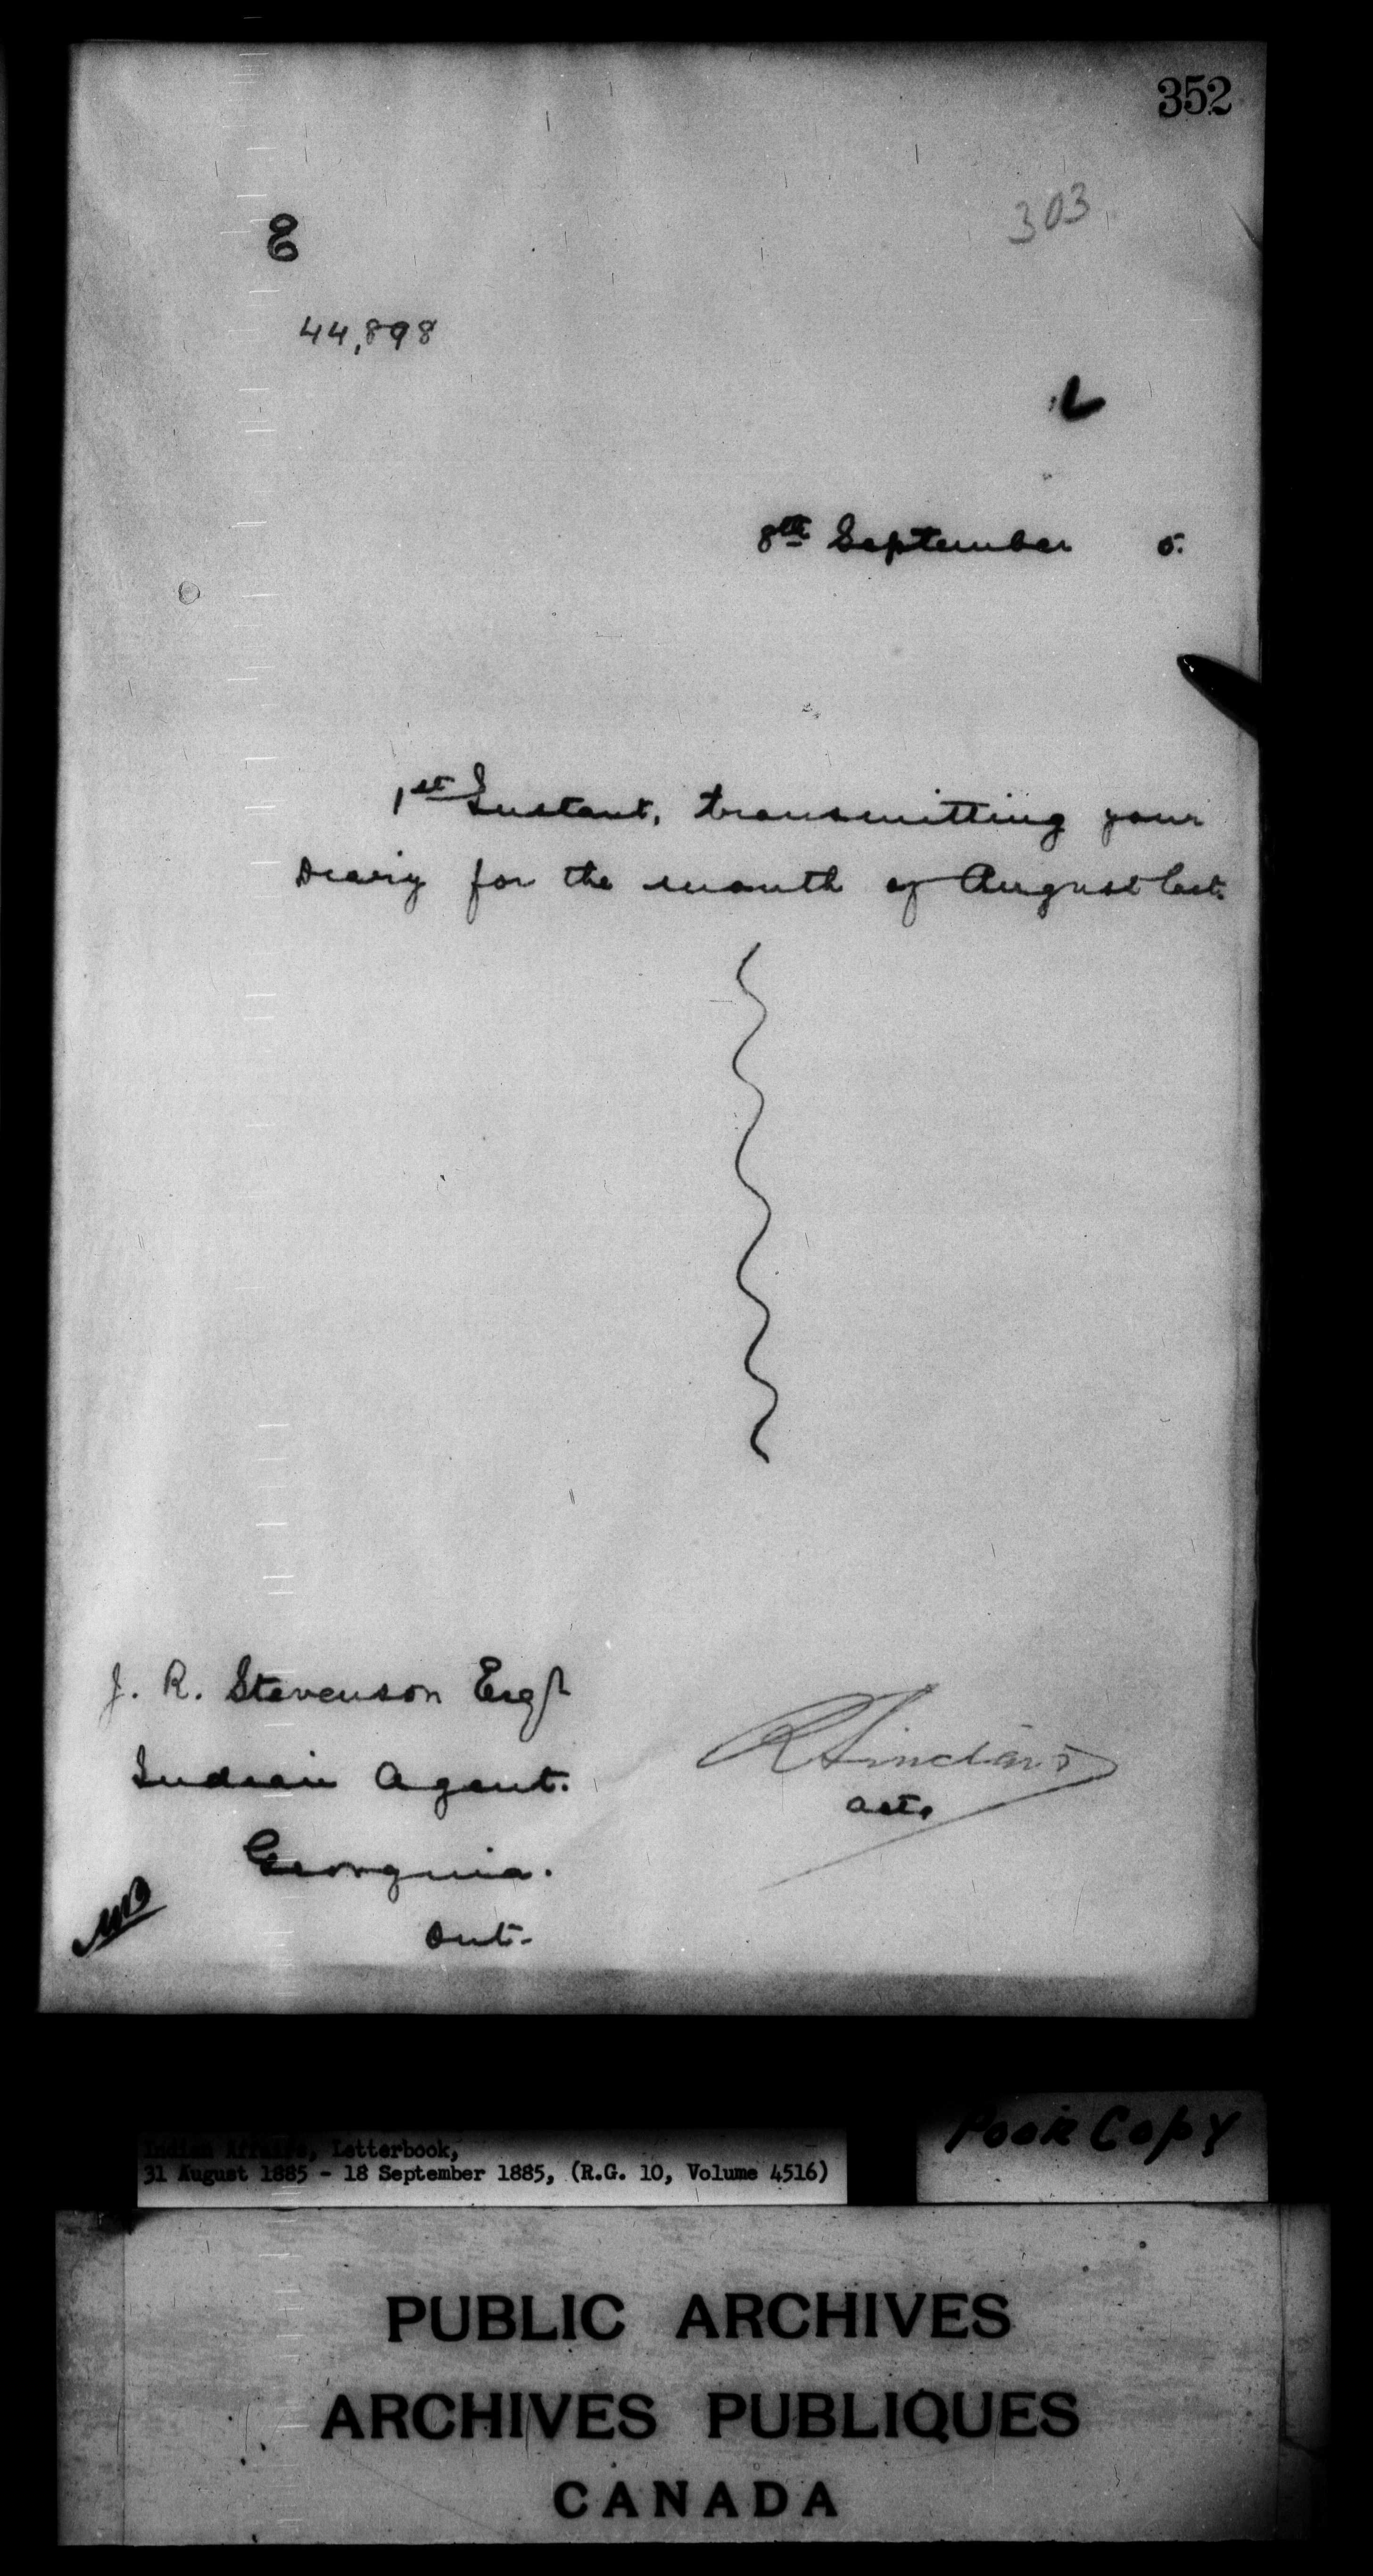 352
303
44,898
L
8th September 5.
1st Instant, transmitting your
Diary for the month of August last.
J. R. Stevenson Esqr
Indian Agent.
Georgina.
Ont.
R Sinclair
actg
Indian Affairs, Letterbook,
31 August 1885 - 18 September 1885, (R.G. 10, Volume 4516)
Poor Copy
PUBLIC ARCHIVES
ARCHIVES PUBLIQUES
CANADA